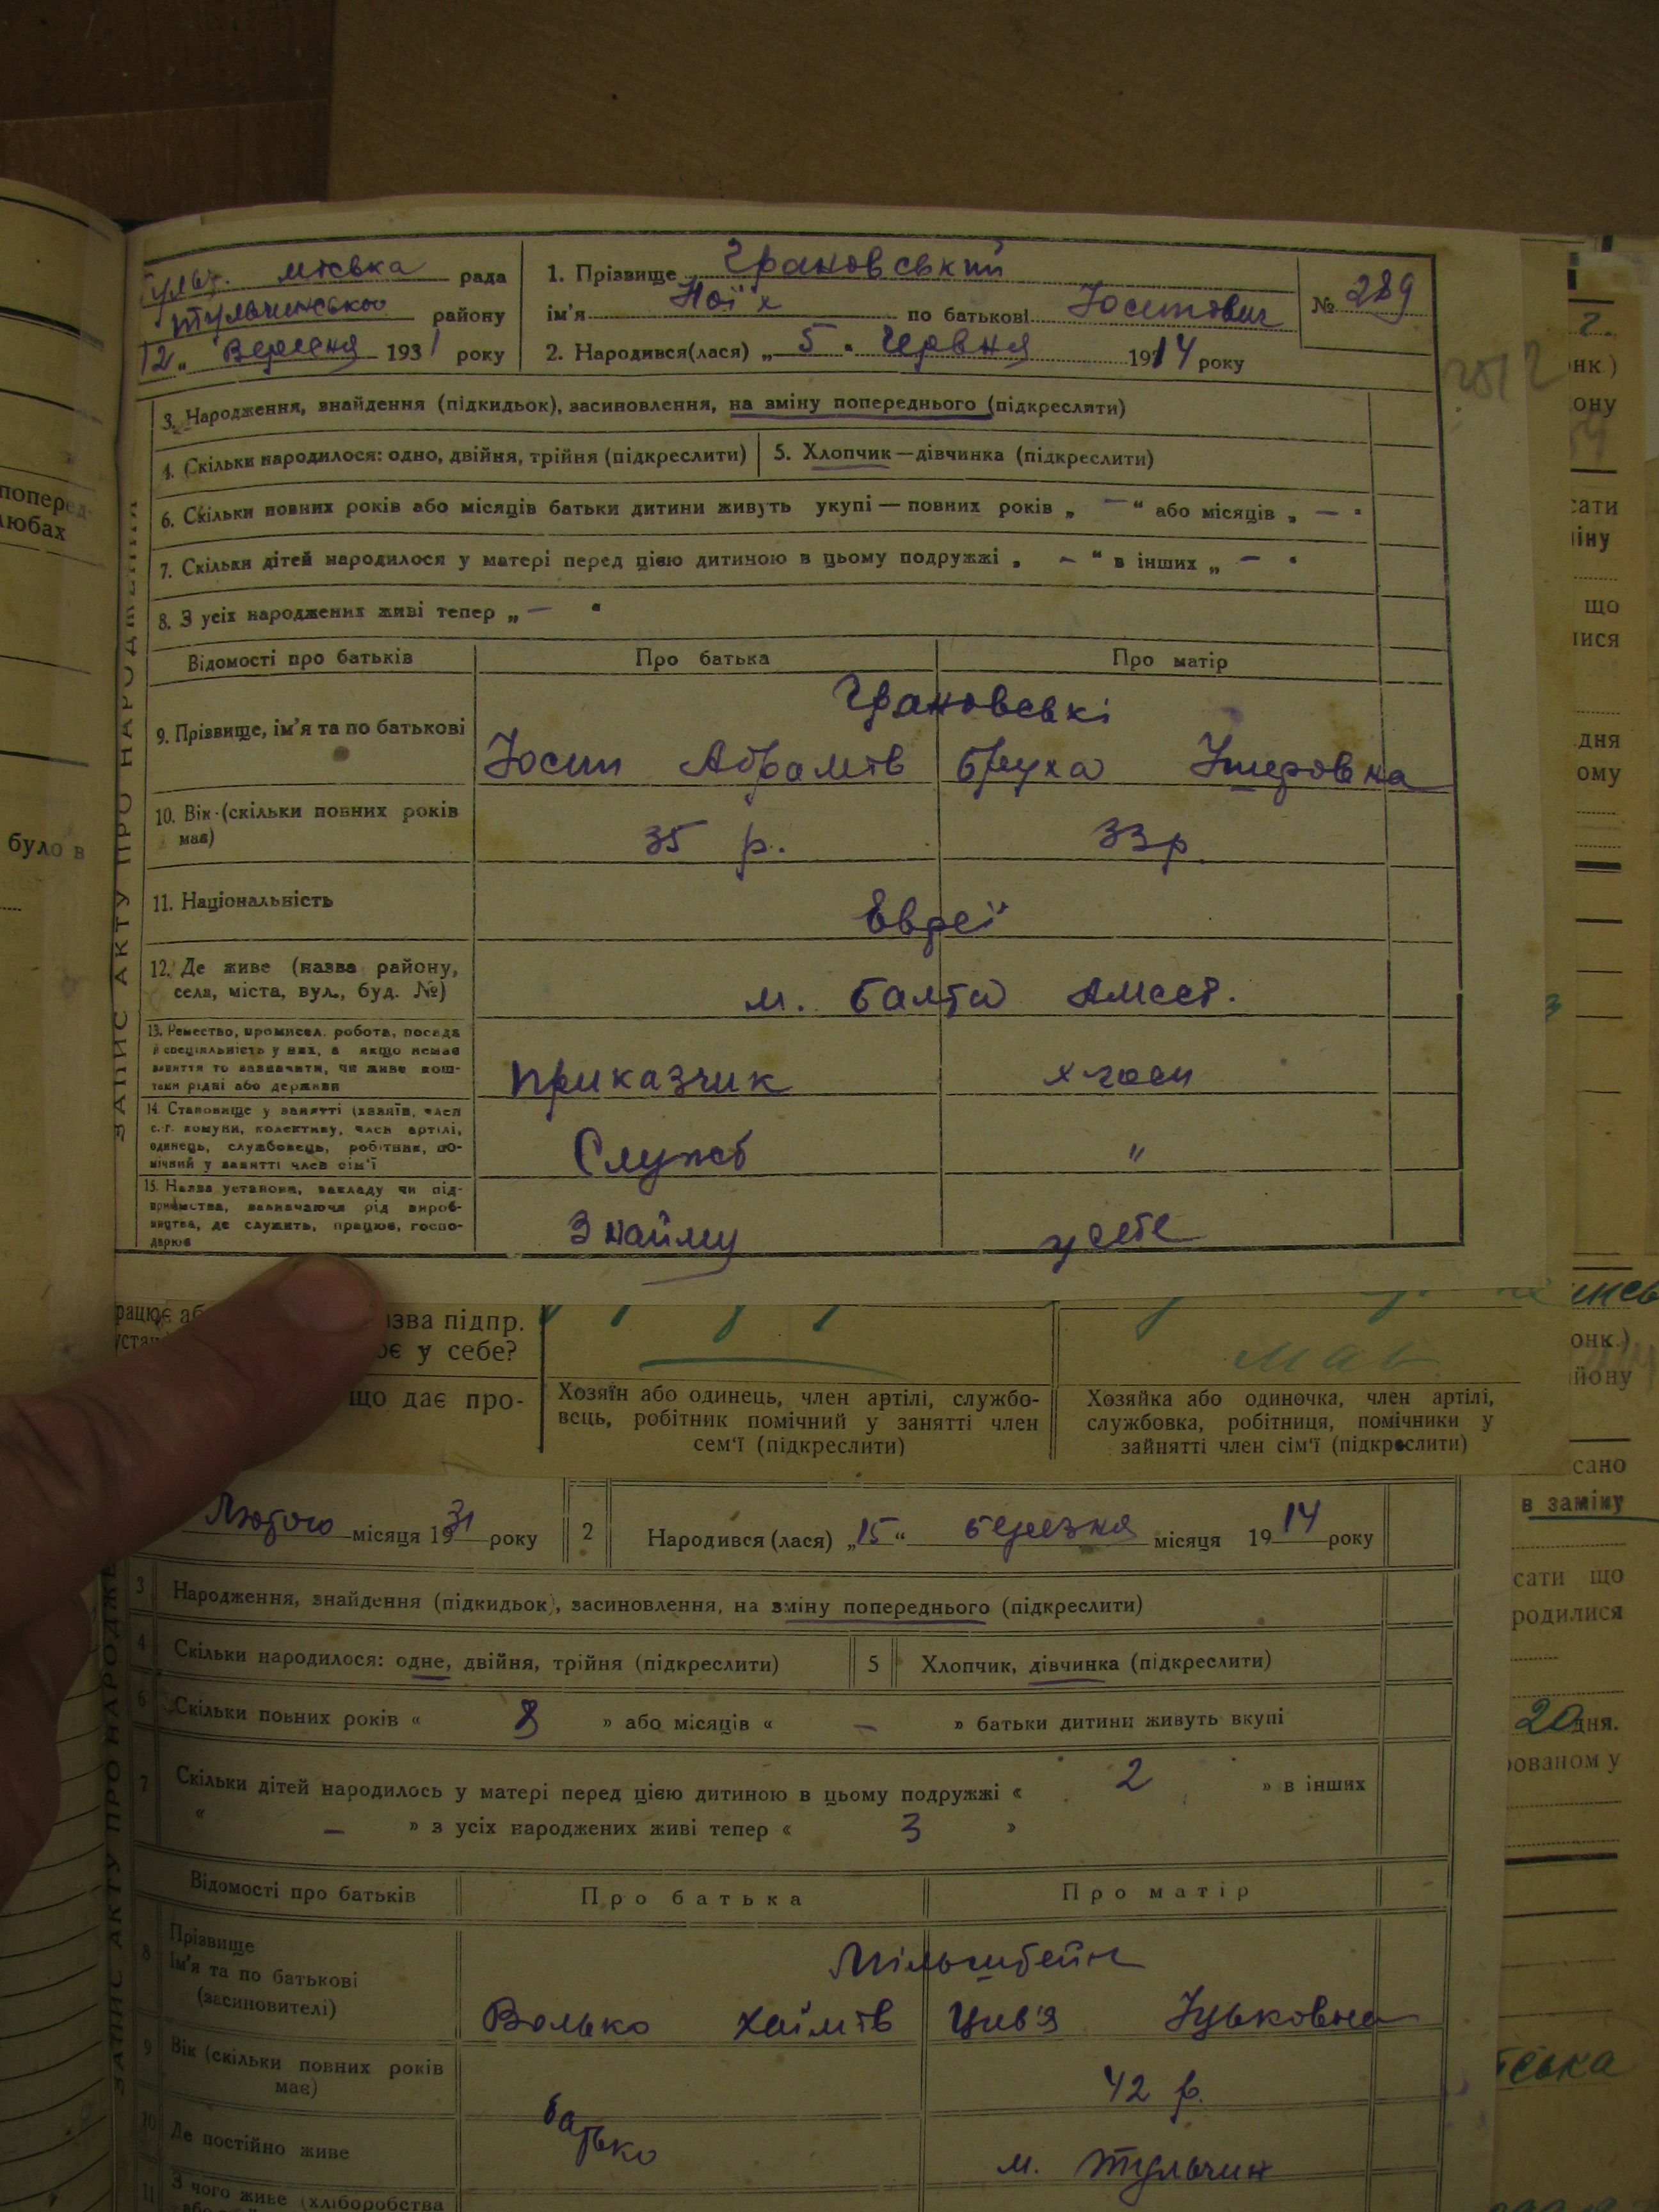 міська рада
Тульчинського району
12 „ Вересня 1931 року
1. Прізвище Грановський
ім'я Ноїх по батькові Йосипович
№ 289
2. Народився(лася) „ 5 " Червня 1914 року
3. Народження, знайдення (підкидьок), засиновлення, на зміну попереднього (підкреслити)
4. Скільки народилося: одно, двійня, трійня (підкреслити) 5. Хлопчик—дівчинка (підкреслити)
6. Скільки повних років або місяців батьки дитини живуть укупі — повних років „ — “ або місяців „ — "
7. Скільки дітей народилося у матері перед цією дитиною в цьому подружжі „ — “ в інших „ — "
8. З усіх народжених живі тепер „ — "
ЗАПИС АКТУ ПРО НАРОДЖЕННЯ
Відомості про батьків Про батька Про матір
9. Прізвище, ім'я та по батькові
Грановські
Йосип Абрамів Бруха Ушеровна
10. Вік (скільки повних років має)
35 р. 33 р
11. Національність
Євреї
12. Де живе (назва району,
села, міста, вул., буд. №)
м. Балта
13. Ремество, промисел, робота, посада
й спеціяльність у них, а якщо немає
заняття то зазначити, чи живе кош-
таки рідні або держави
приказчик х-госп
14. Становище у занятті (хазяїн, член
с.-г. комуни, колективу, член артілі,
одинець, службовець, робітник, по-
мічний у занятті член сім'ї
Служб "
15. Назва установи, закладу чи під-
приємства, зазначаючи рід вироб-
ництва, де служить, працює, госпо-
дарює
З найму у себе
поперед-
любах
було в
зва підпр.
є у себе?
що дає про-
Хозяїн або одинець, член артілі, службо-
вець, робітник помічний у занятті член
сем'ї (підкреслити)
Хозяйка або одиночка, член артілі,
службовка, робітниця, помічники у
зайнятті член сім'ї (підкреслити)
Лютого місяця 1931 року
2 Народився (лася) „15“ березня місяця 1914 року
3 Народження, знайдення (підкидьок), засиновлення, на зміну попереднього (підкреслити)
4 Скільки народилося: одне, двійня, трійня (підкреслити) 5 Хлопчик, дівчинка (підкреслити)
6 Скільки повних років « 8 » або місяців « — » батьки дитини живуть вкупі
7 Скільки дітей народилось у матері перед цією дитиною в цьому подружжі « 2 » в інших
« — » з усіх народжених живі тепер « 3 »
Відомості про батьків Про батька Про матір
8 Прізвище
Ім'я та по батькові
(засиновителі)
Мільштейн
Волько Хаїмів Цив'я Іцьковна
9 Вік (скільки повних років
має)
42 р.
10 Де постійно живе
батько м. Тульчин
11 З чого живе (хліборобства
нк.)
ому
сано
в заміну
сати що
родилися
20 дня.
ованому